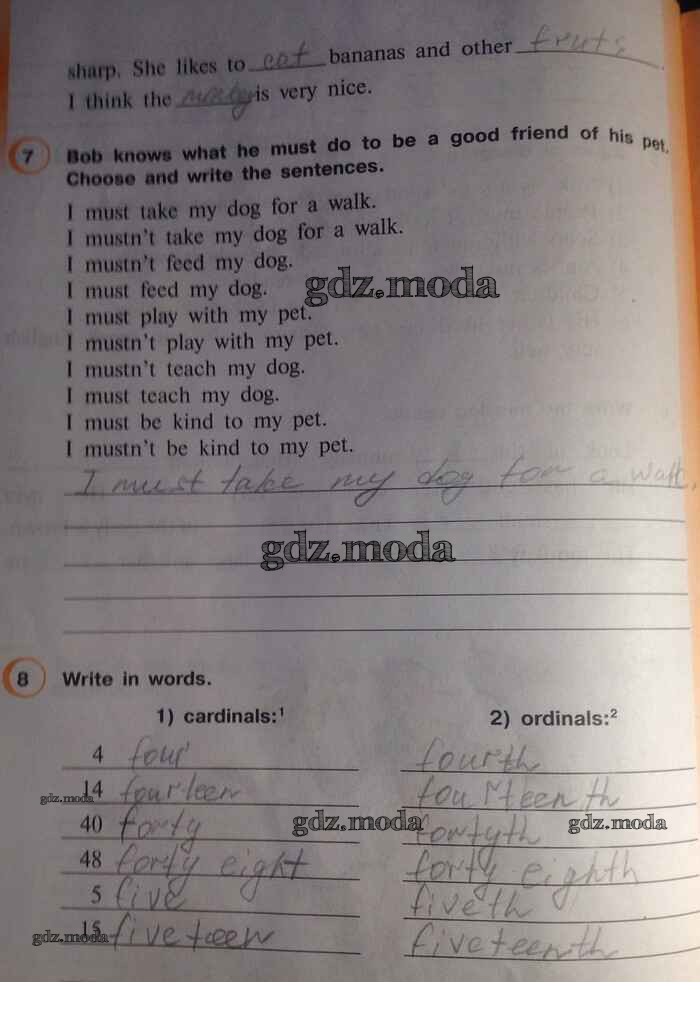 sharp. She likes to eat bananas and other fruits.
I think the is very nice.
7 Bob knows what he must do to be a good friend of his pet.
Choose and write the sentences.
I must take my dog for a walk.
I mustn't take my dog for a walk.
I mustn't feed my dog.
I must feed my dog.
gdz.moda
I must play with my pet.
I mustn't play with my pet.
I mustn't teach my dog.
I must teach my dog.
I must be kind to my pet.
I mustn't be kind to my pet.
I must take my dog for a walk.
gdz.moda
8 Write in words.
1) cardinals:¹ 2) ordinals:²
4 four fourth
14 fourteen fourteenth
gdz.moda
40 forty fortyth
gdz.moda gdz.moda
48 forty eight forty eighth
5 five fiveth
15 fiveteen fiveteenth
gdz.moda